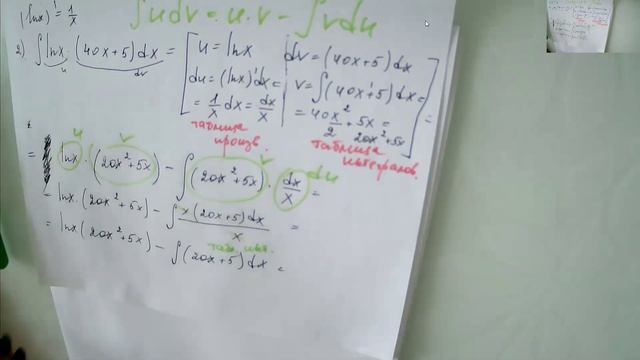 (lnx)' = 1/x
∫udv = u·v − ∫vdu
2) ∫ lnx · (40x+5)dx = [ u = lnx | dv = (40x+5)dx
u dv
du = (lnx)'dx = | v = ∫(40x+5)dx =
= 1/x dx = dx/x | = 40x²/2 + 5x =
20x²+5x ] =
таблица произв.
таблица интегралов.
u v v du
= lnx · (20x²+5x) − ∫(20x²+5x) · dx/x =
= lnx · (20x²+5x) − ∫ x(20x+5)dx/x =
= lnx(20x²+5x) − ∫(20x+5)dx =